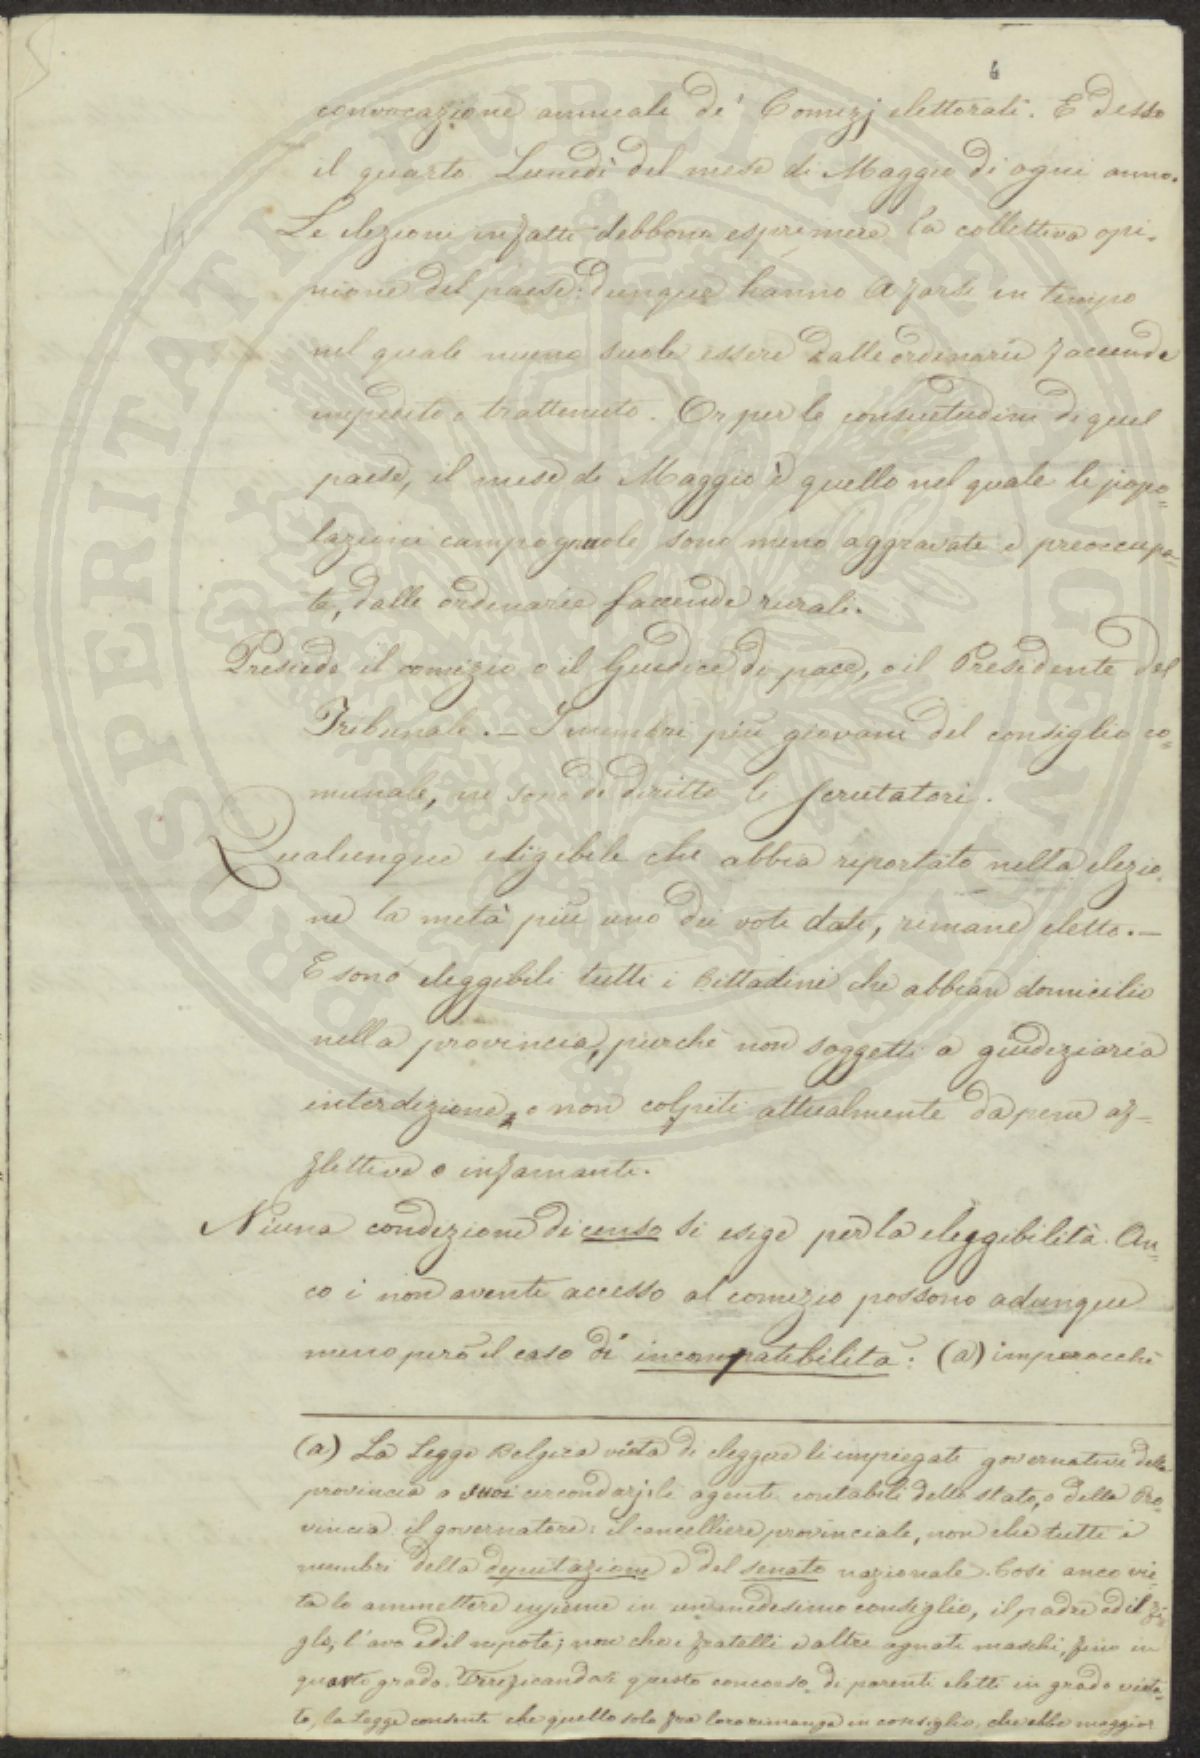 6
convocazione annuale de' Comizj elettorali. E desso
il quarto Lunedì del mese di Maggio di ogni anno.
Le elezioni infatti debbono esprimere la collettiva opi-
nione del paese: dunque hanno a farsi in tempo
nel quale niuno suole essere dalle ordinarie faccende
impedito o trattenuto. Or per le consuetudini di quel
paese, il mese di Maggio è quello nel quale le popo-
lazioni campagnuole sono meno aggravate e preoccupa-
te, dalle ordinarie faccende rurali.
Presiede il comizio o il Giudice di pace, o il Presidente del
Tribunale. — I membri più giovani del consiglio co-
munale, ne sono di diritto li scrutatori.
Qualunque eligibile che abbia riportato nella elezio-
ne la metà più uno dei voti dati, rimane eletto. —
E sono eleggibili tutti i Cittadini che abbian domicilio
nella provincia, purchè non soggetti a giudiziaria
interdizione, o non colpiti attualmente da pene af-
flettive o infamanti.
Niuna condizione di censo si esige per la eleggibilità. An-
co i non aventi accesso al comizio possono adunque
meno però il caso di incompatibilità: (a) imperocchè
(a) La Legge Belgica vieta di eleggere li impiegati governativi della
provincia o suoi circondarj: li agenti contabili dello stato, o della Pro-
vincia: il governatore: il cancelliere provinciale, non che tutti i
membri della deputazione e del senato nazionale. Così anco vie-
ta lo ammettere insieme in un medesimo consiglio, il padre ed il fi-
glo, l'avo ed il nipote; non che i fratelli e altri agnati maschi, fino in
quarto grado. Verificandosi questo concorso di parenti eletti in grado vieta-
to, la Legge consente che quello solo fra loro rimanga in consiglio, che ebbe maggior
PROSPERITATI PVBLICAE AVGENDAE